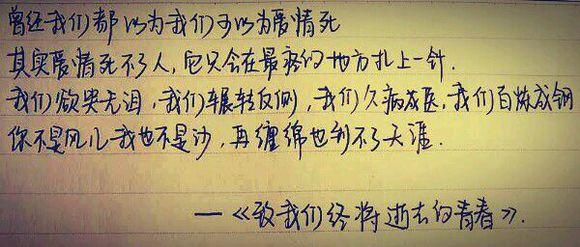 曾经我们都以为我们可以为爱情死
其实爱情死不了人,它只会在最疼的地方扎上一针.
我们欲哭无泪,我们辗转反侧,我们久病成医,我们百炼成钢
你不是风儿我也不是沙,再缠绵也到不了天涯.
—《致我们终将逝去的青春》.